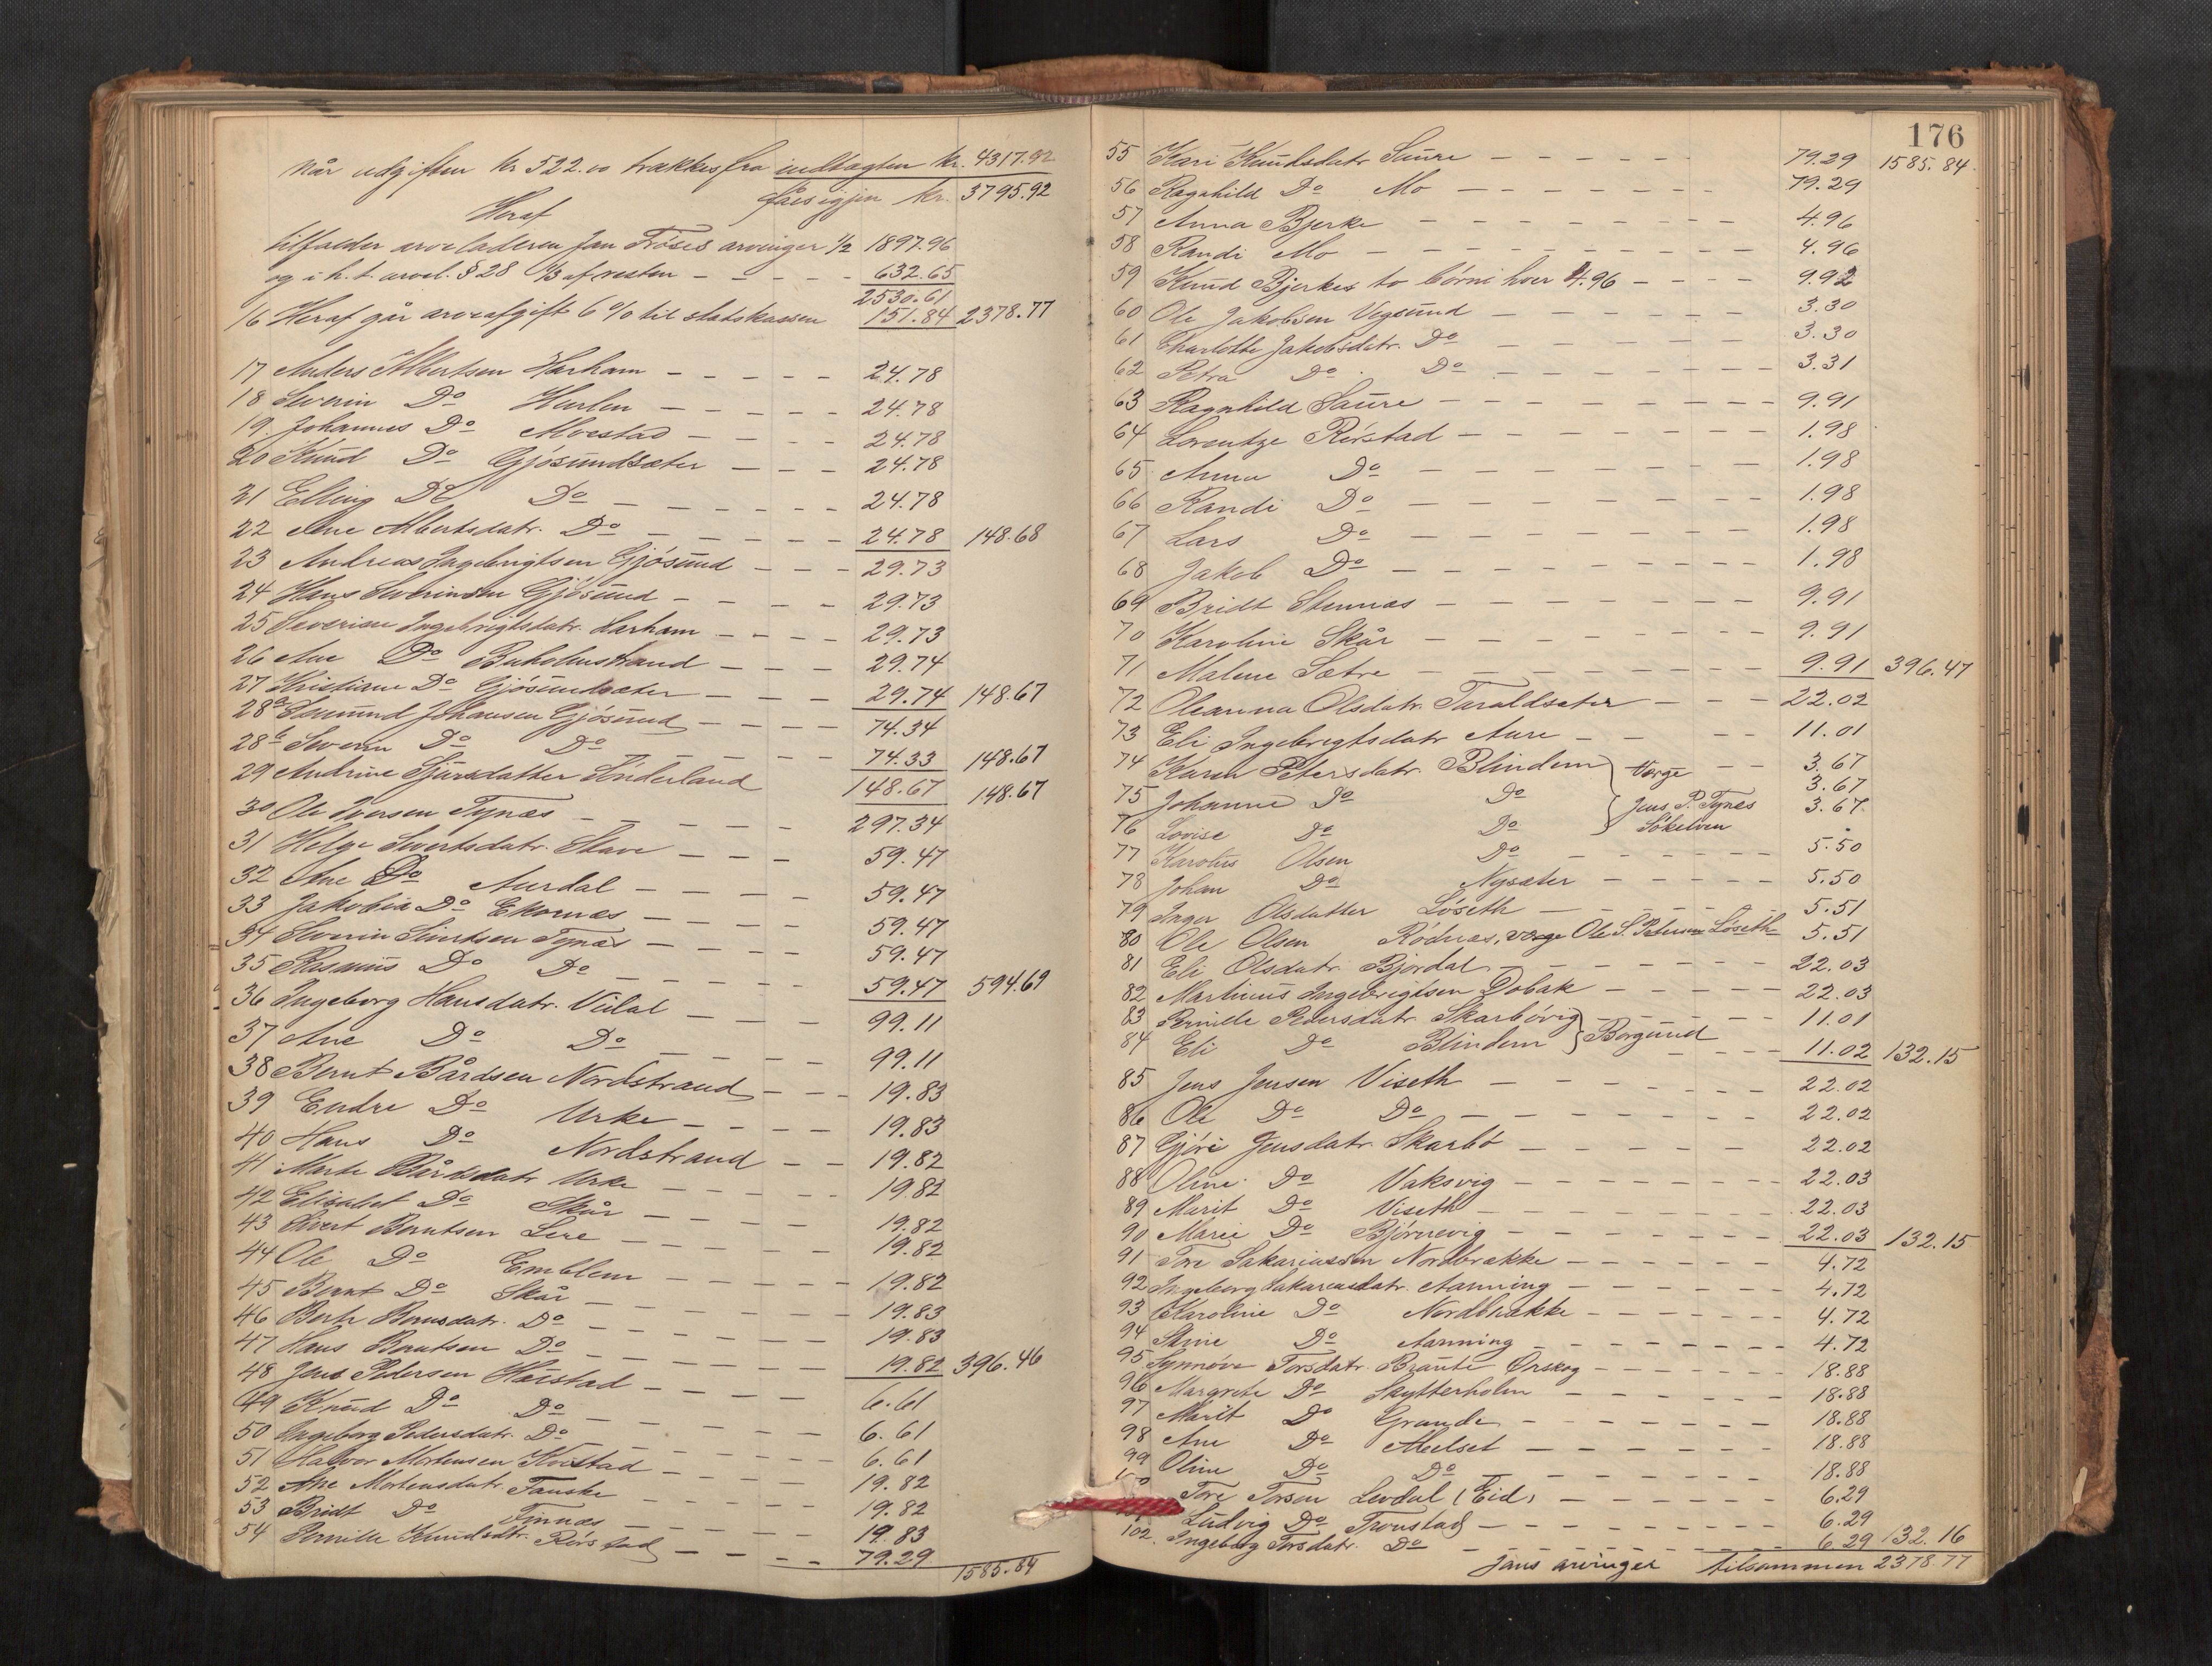 Når udgiften kr 522.00 trækkes fra indtægten kr. 4317.92
fåes igjen kr. 3795.92
Heraf
tilfalder arveladeren Jan Fröses arvinger 1/2 1897.96
og i h. t. arvel. § 28 1/3 af resten - - - 632.65
2530.61
16 Heraf går arveafgift 6 % til statskassen 151.84 2378.77
17 Anders Albertsen Harham - - - - - 24.78
18 Severin Do Hurlen - - - - - 24.78
19 Johannes Do Alvestad - - - - 24.78
20 Knud Do Gjøsundsæter - - - 24.78
21 Elling Do Do - - - - - - 24.78
22 Ane Albertsdatr. Do - - - - - - 24.78 148.68
23 Andreas Ingebrigtsen Gjøsund - - - 29.73
24 Hans Severinsen Gjøsund - - - - 29.73
25 Severine Ingebrigtsdatr. Harham - - - - 29.73
26 Ane Do Bakholmstrand - - - 29.74
27 Kristiane Do Gjøsundsæter - - - 29.74 148.67
28a Johansen Gjøsund - - - - 74.34
28b Severin Do Do - - - - - 74.33 148.67
29 Andrine Sjursdatter Sönderland 148.67 148.67
30 Ole Iversen Tynes - - - - - - 297.34
31 Helge Sivertsdatr. Stave - - - 59.47
32 Ane Do Aurdal - - - - 59.47
33 Jakobia Do Ekornæs - - - - 59.47
34 Severin Sivertsen Tynæs - - - - 59.47
35 Rasmus Do Do - - - - - 59.47 594.69
36 Ingeborg Hansdatr. Vidal - - - - 99.11
37 Ane Do Do - - - - - 99.11
38 Bernt Bårdsen Nordstrand - - - 19.83
39 Endre Do Urke - - - - 19.83
40 Hans Do Nordstrand - - 19.82
41 Marte Bårdsdatr Urke - - - - - 19.82
42 Elisabet Do Skår - - - - - 19.82
43 Sivert Berntsen Lere - - - - - 19.82
44 Ole Do Emblem - - - - - - 19.82
45 Bernt Do Skår - - - - - - 19.83
46 Berte Berntsdatr. Do - - - - - - 19.83
47 Hans Berntsen Do - - - - - - 19.82 396.46
48 Jens Pedersen Hovstad - - - - 6.61
49 Knud Do Do - - - - - 6.61
50 Ingeborg Pedersdatr. Do - - - - - 6.61
51 Halvor Mortensen Hovstad - - - - 19.82
52 Ane Mortensdatr. Fauske - - - - - 19.82
53 Bridt Do Finnæs - - - - - 19.83
54 Pernille Knudsdtr. Rørstad - - - - 79.29
1585.84
176
55 Kari Knudsdatr Saure - - - - - - 79.29 1585.84
56 Ragnhild Do Mo - - - - - - - 79.29
57 Anna Bjerke - - - - - - - - 4.96
58 Randi Mo - - - - - - - - - 4.96
59 Knud Bjerkes to børn hver 4.96 - - - - 9.92
60 Ole Jakobsen Vegsund - - - - - - 3.30
61 Charlotte Jakobsdatr. Do - - - - - - 3.30
62 Petra Do Do - - - - - - 3.31
63 Ragnhild Saure - - - - - - - - 9.91
64 Lorentze Rørstad - - - - - - - 1.98
65 Anna Do - - - - - - - - 1.98
66 Randi Do - - - - - - - - 1.98
67 Lars Do - - - - - - - - 1.98
68 Jakob Do - - - - - - - - 1.98
69 Bridt Stennæs - - - - - - - - 9.91
70 Karoline Skår - - - - - - - - 9.91
71 Malene Sætre - - - - - - - - 9.91 396.47
72 Oleanna Olsdatr. Taraldsæter - - - 22.02
73 Eli Ingebrigtsdatr Aure - - - - 11.01
74 Karen Petersdatr. Blindem } Værge - - 3.67
75 Johanne Do Do } Jens P. Tynes 3.67
76 Lovise Do Do } Søkelven 3.67
77 Karolus Olsen Do - - - - - - 5.50
78 Johan Do Nysæter - - - - - 5.50
79 Inger Olsdatter Løseth - - - - - - 5.51
80 Ole Olsen Rødnæs, værge Ole S. Petersen Løseth 5.51
81 Eli Olsdatr. Bjørdal - - - - - - - 22.03
82 Martinus Ingebrigtsen Dobak - - - - - 22.03
83 Pernille Pedersdatr. Skarbøvig } Borgund 11.01
84 Eli Do Blindem } - - - - 11.02 132.15
85 Jens Jensen Viseth - - - - - - - 22.02
86 Ole Do Do - - - - - - - 22.02
87 Gjøre Jensdatr. Skarbø - - - - - - 22.02
88 Oline Do Vaksvig - - - - - - - 22.03
89 Marit Do Viseth - - - - - - - 22.03
90 Marie Do Bjørnevig - - - - - - - 22.03 132.15
91 Tore Sakariassen Nordbrække - - - - - - 4.72
92 Ingeborg Sakariasdatr. Aanning - - - - - - 4.72
93 Karoline Do Nordbrække - - - - - - 4.72
94 Stine Do Aanning - - - - - - 4.72
95 Synnøve Torsdatr. Braute Ørskog - - - - - 18.88
96 Margrete Do Skytterholm - - - - - - 18.88
97 Marit Do Grande - - - - - - - 18.88
98 Ane Do Abelset - - - - - - - 18.88
99 Oline Do Do - - - - - - - 18.88
Tore Torsen Levdal (Eid) - - - - - - 6.29
Ludvig Do Tronstad - - - - - - - 6.29
102. Ingeborg Torsdatr. Do - - - - - - - 6.29 132.16
Jans arvinger tilsammen 2378.77